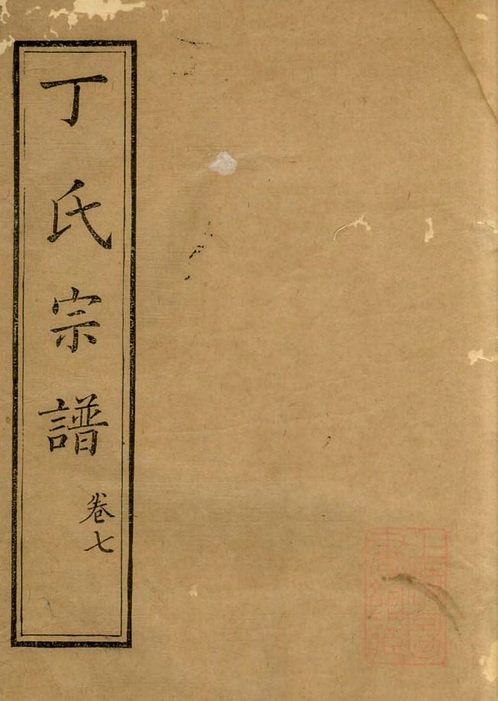 丁氏宗譜
卷七